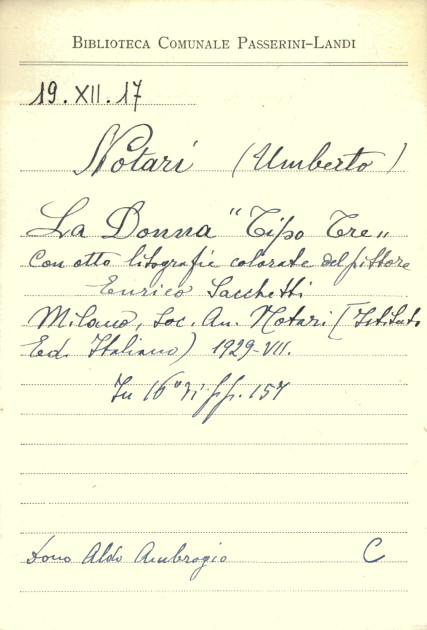 BIBLIOTECA COMUNALE PASSERINI-LANDI
19.XII.17
Notari (Umberto)
La Donna "Tipo Tre"
Con otto litografie colorate del pittore
Enrico Sacchetti
Milano, Soc. An. Notari (Istituto
Ed. Italiano) 1929-VII.
In 16° di pp. 157
Dono Aldo Ambrogio C